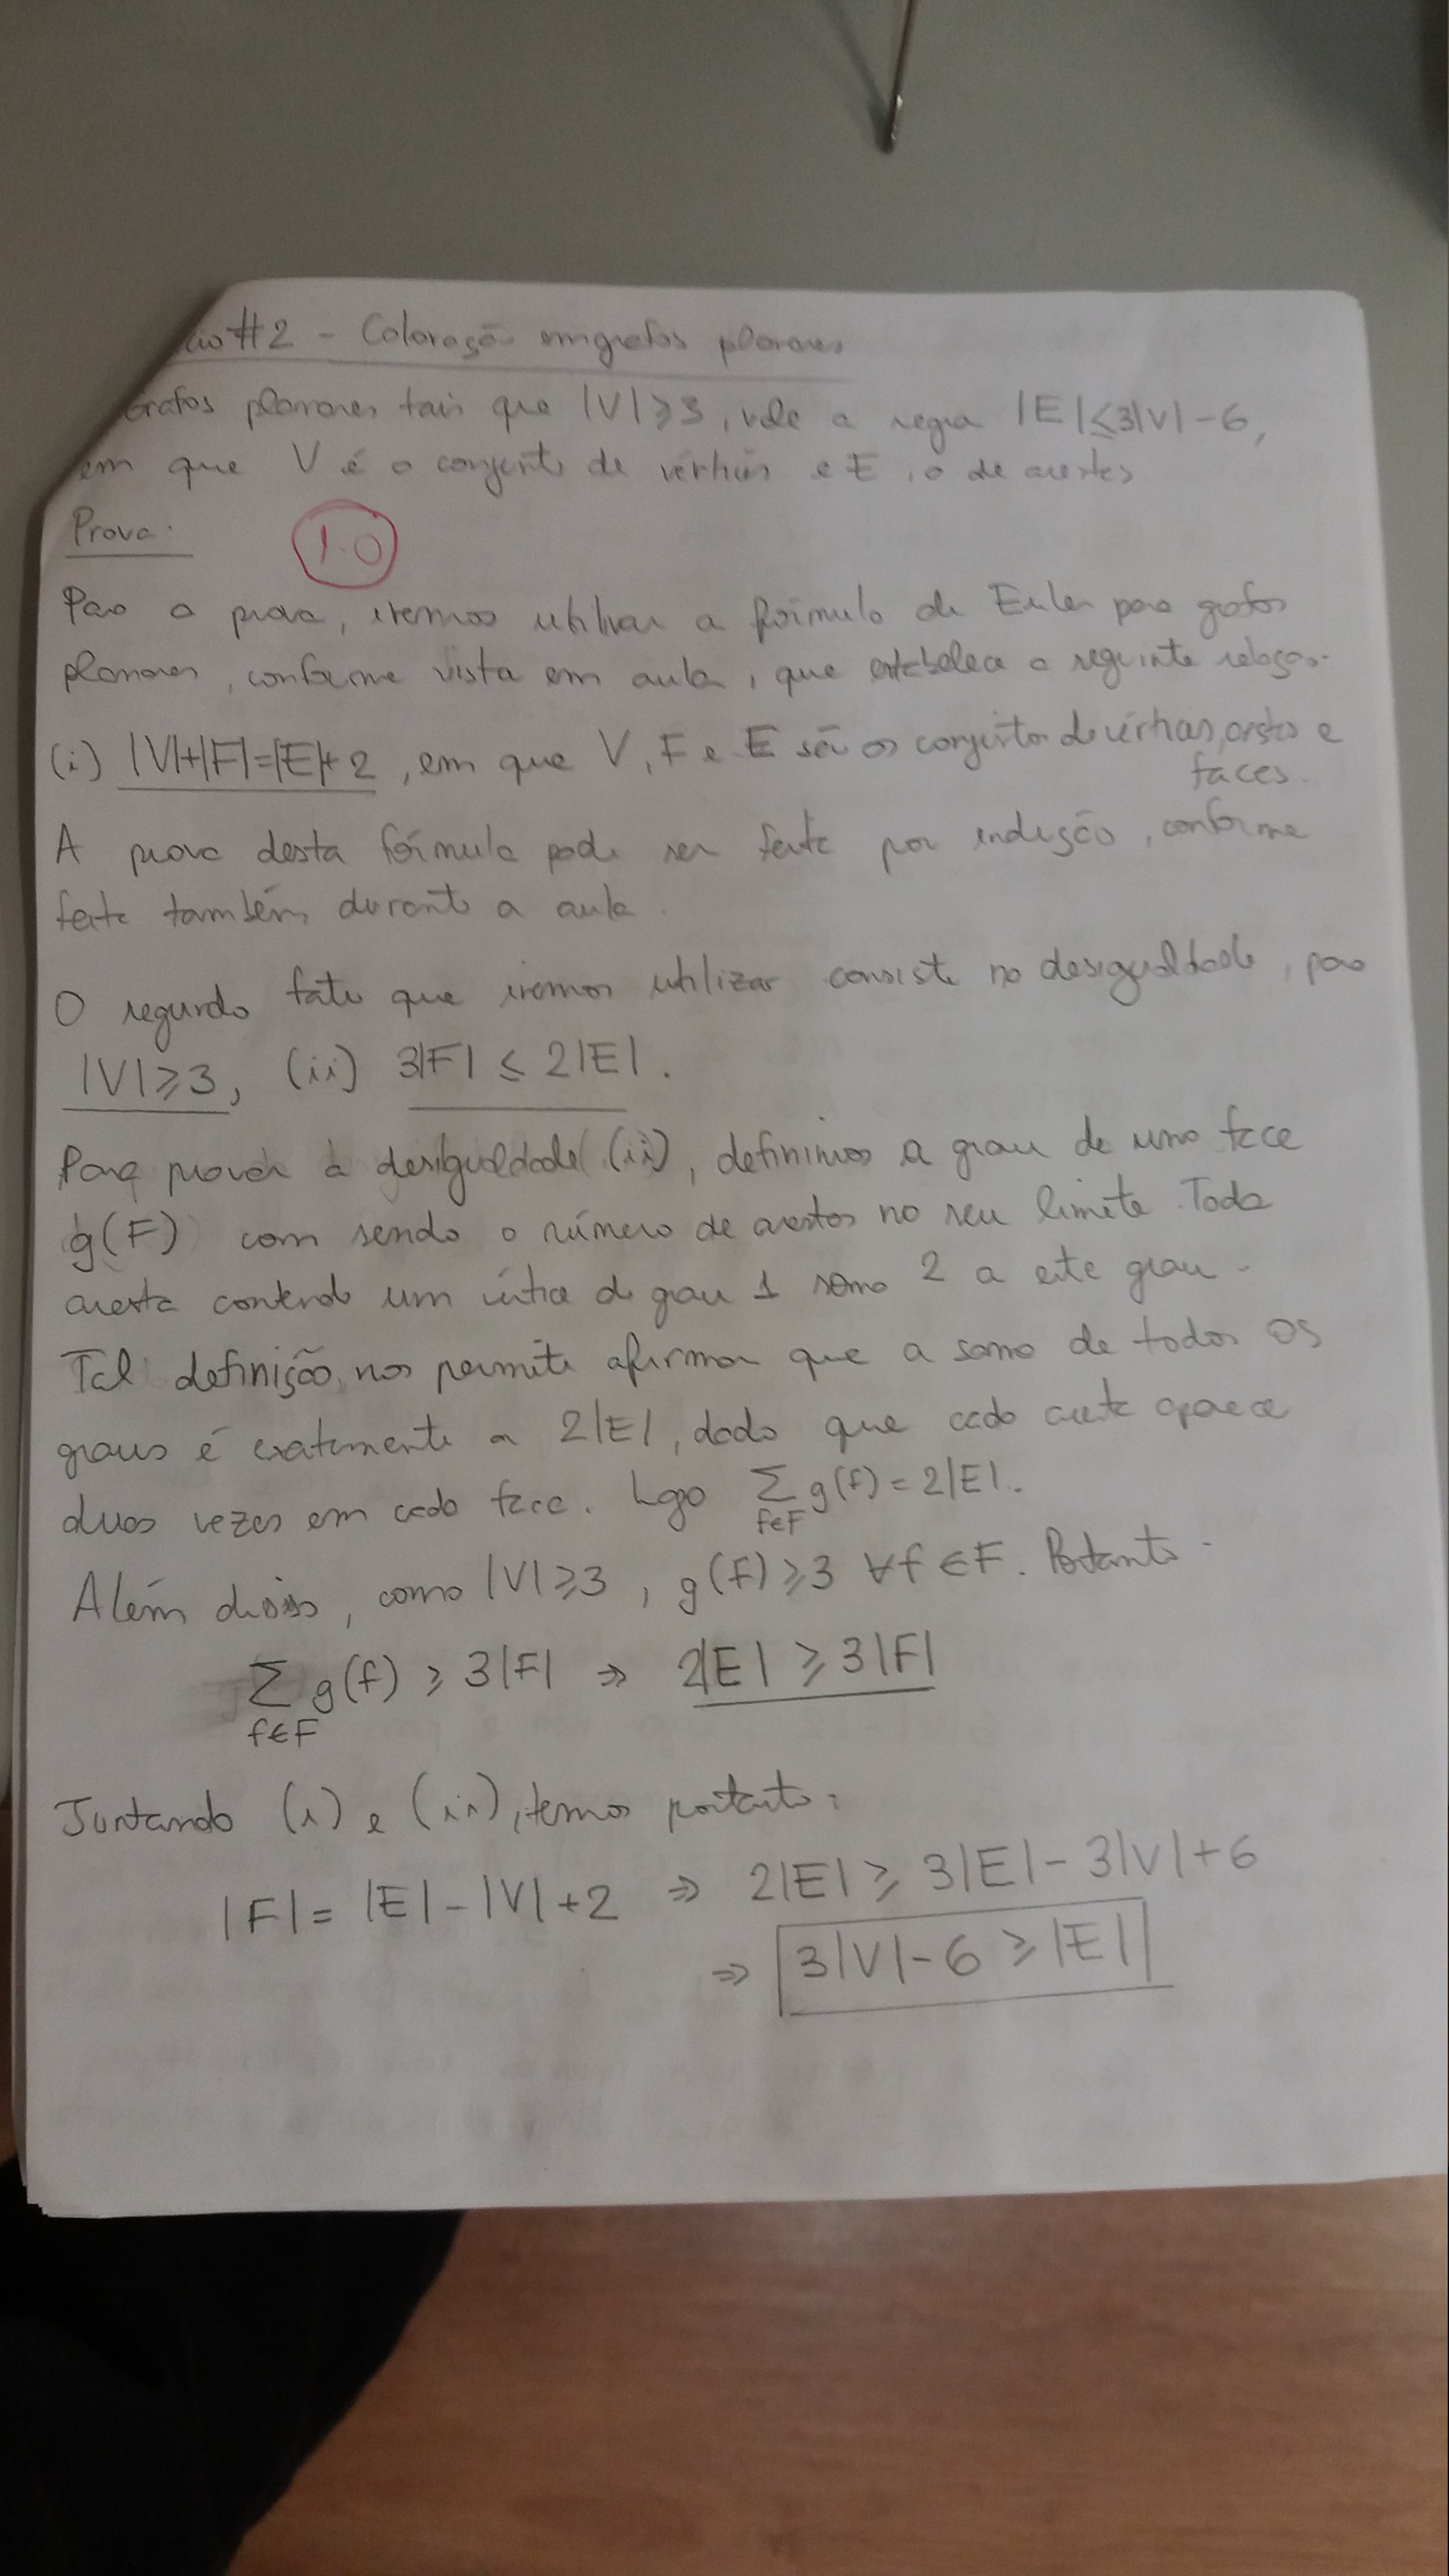 ão #2 - Coloração em grafos planares
Grafos planares tais que |V| ⩾ 3, vale a regra |E| ⩽ 3|V| - 6,
em que V é o conjunto de vértices e E, o de arestas
Prova:
1.0
Para a prova, iremos utilizar a fórmula de Euler para grafos
planares, conforme vista em aula, que estabelece a seguinte relação.
(i) |V|+|F|=|E|+2, em que V, F e E são os conjuntos de vértices, arestas e
faces.
A prova desta fórmula pode ser feita por indução, conforme
feita também durante a aula.
O segundo fato que iremos utilizar consiste na desigualdade, para
|V| ⩾ 3, (ii) 3|F| ⩽ 2|E|.
Para provar a desigualdade (ii), definimos a grau de uma face
g(F) com sendo o número de arestas no seu limite. Toda
aresta contendo um vértice de grau 1 soma 2 a este grau.
Tal definição nos permite afirmar que a soma de todos os
graus é exatamente a 2|E|, dado que cada aresta aparece
duas vezes em cada face. Logo ∑ g(f) = 2|E|.
f∈F
Além disso, como |V| ⩾ 3, g(f) ⩾ 3 ∀f ∈ F. Portanto:
∑ g(f) ⩾ 3|F| ⇒ 2|E| ⩾ 3|F|
f∈F
Juntando (i) e (ii), temos portanto:
|F| = |E| - |V| + 2 ⇒ 2|E| ⩾ 3|E| - 3|V| + 6
⇒ 3|V| - 6 ⩾ |E|